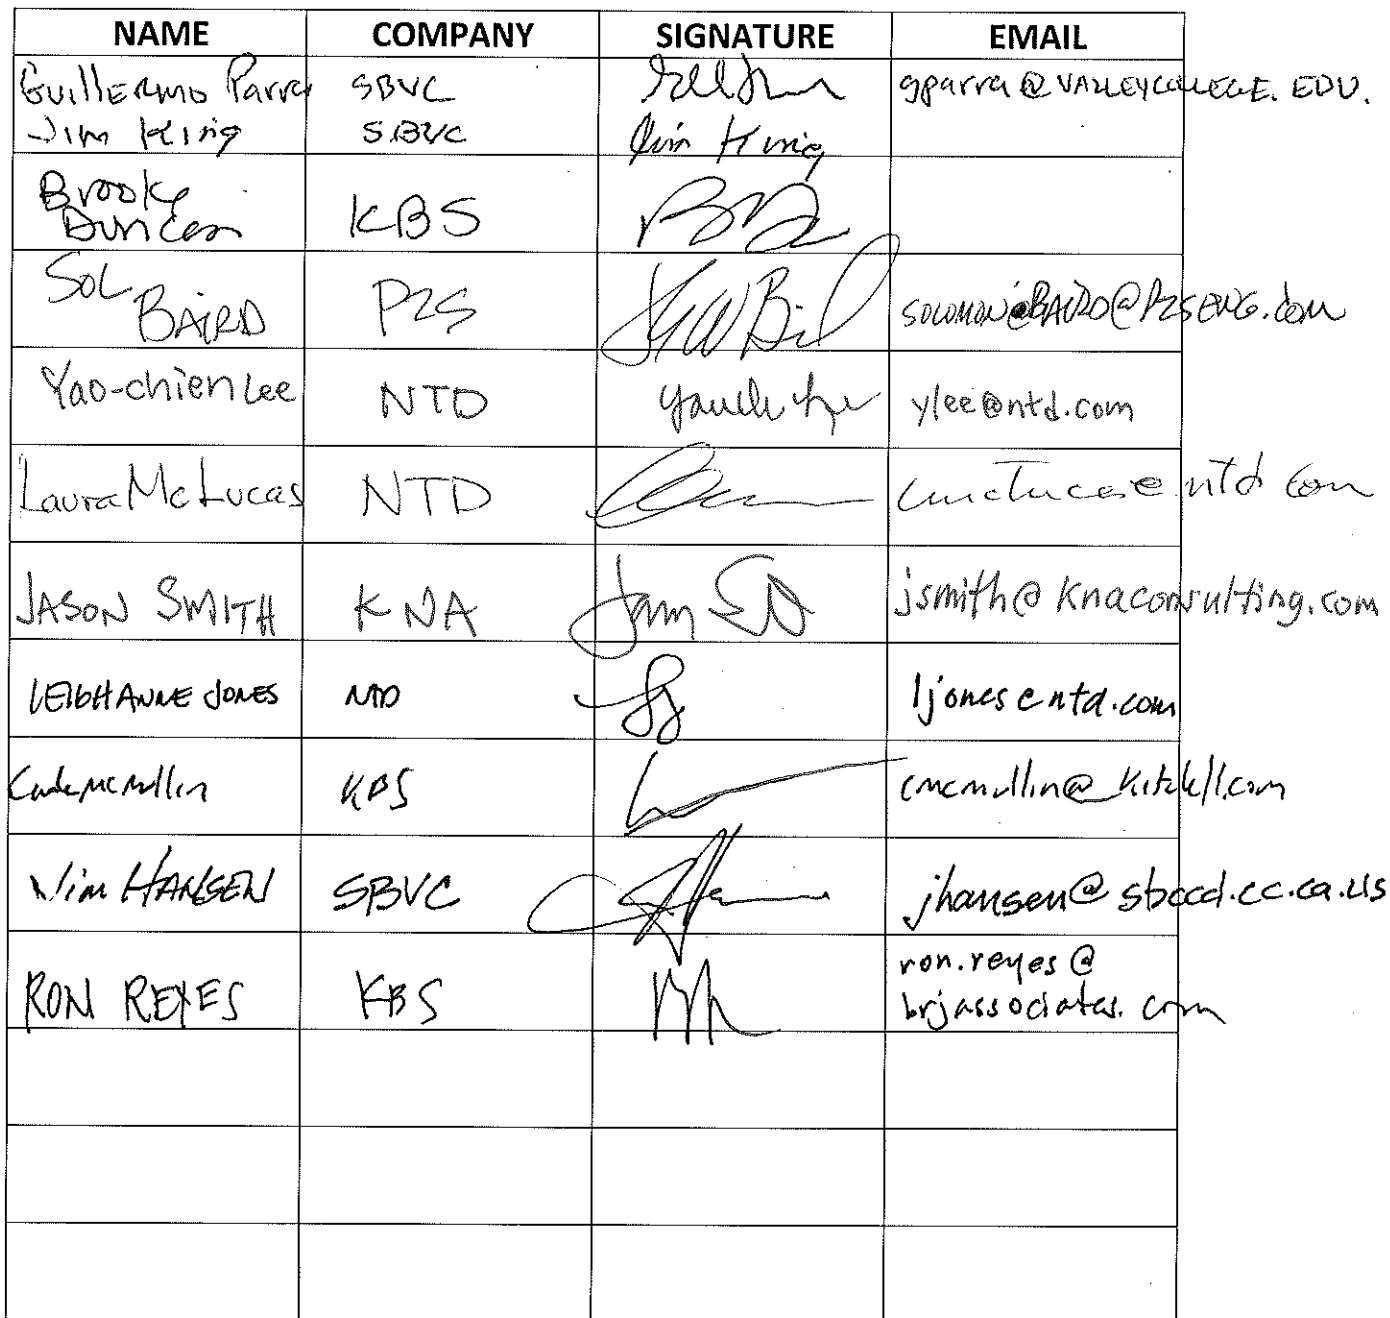 NAME COMPANY SIGNATURE EMAIL
Guillermo Parra SBVC gparra@VALLEYCOLLEGE.EDU.
Jim King SBVC Jim King
Brooke
Duncan KBS
SOL
BAIRD P2S @P2SENG.com
Yao-chien Lee NTD ylee@ntd.com
Laura McLucas NTD lmclucas@ntd.com
JASON SMITH KNA jsmith@knaconsulting.com
LEIGHANNE JONES NTD ljones@ntd.com
McMullin KBS cmcmullin@kitchell.com
Jim HANSEN SBVC jhansen@sbccd.cc.ca.us
RON REYES KBS ron.reyes@
brjassociates.com